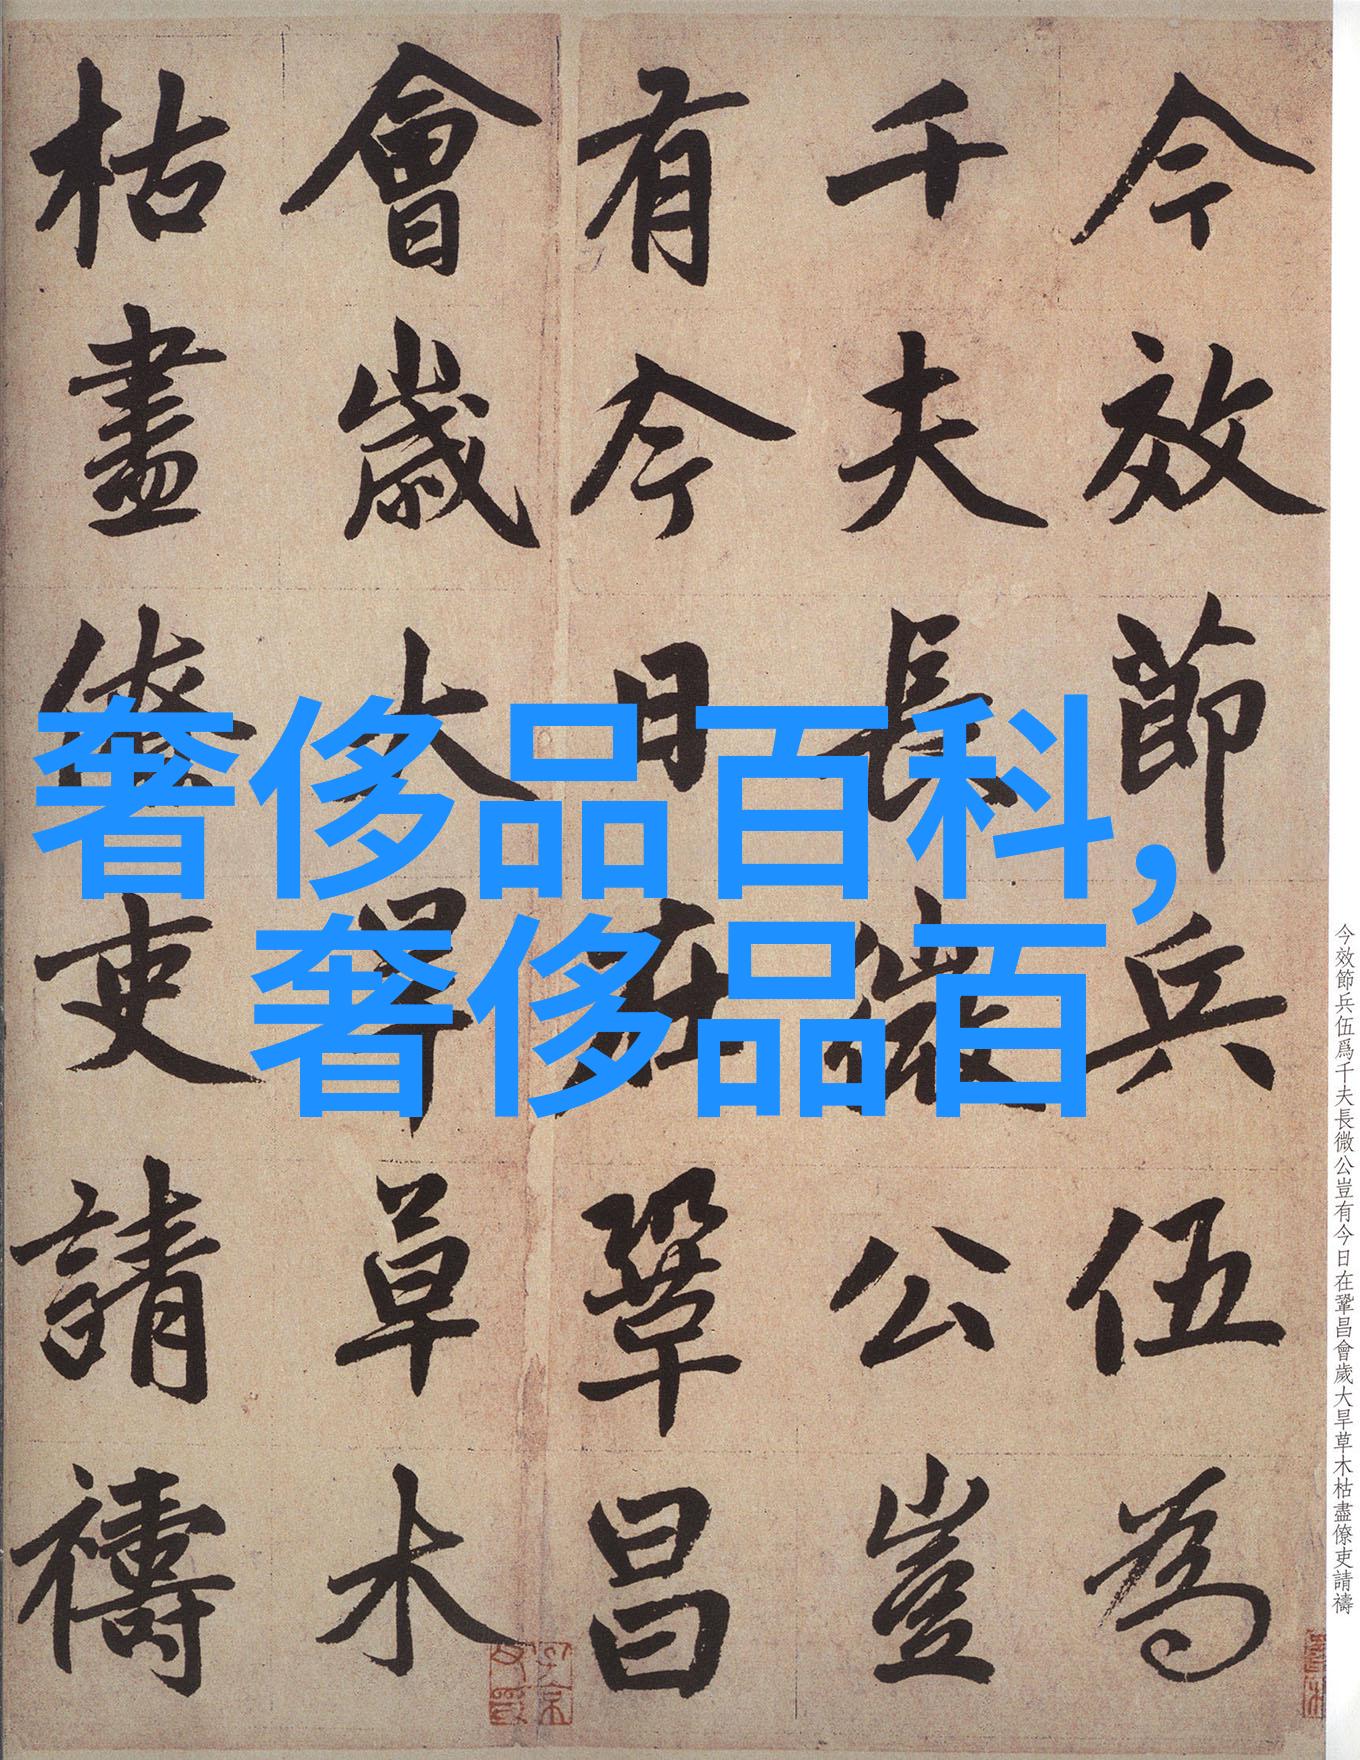 今效節兵伍為
千夫長微公豈
有今日在鞏昌
會歲大旱草木
枯盡僚吏請禱
奢侈品百科，
奢侈品百
今效節兵伍爲千夫長微公豈有今日在鞏昌會歲大旱草木枯盡僚吏請禱